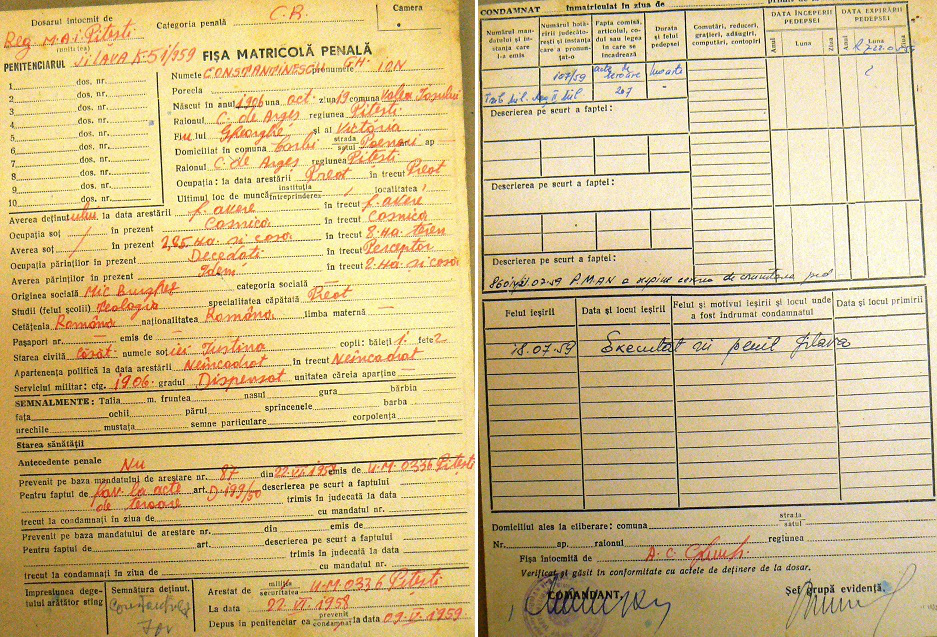 Dosarul întocmit de
Reg. M.A.I. Pitești
(unitatea)
Categoria penală C.R.
Camera
PENITENCIARUL JILAVA K-51/959
FIȘA MATRICOLĂ PENALĂ
1 dos. nr.
2 dos. nr.
3 dos. nr.
4 dos. nr.
5 dos. nr.
6 dos. nr.
7 dos. nr.
8 dos. nr.
9 dos. nr.
10 dos. nr.
Numele CONSTANTINESCU GH. prenumele ION
Porecla
Născut în anul 1906 luna oct. ziua 19 comuna Valea Iașului
Raionul C. de Argeș regiunea Pitești
Fiul lui Gheorghe și al Victoria
Domiciliat în comuna Corbi strada satul Poenari ap
Raionul C. de Argeș regiunea Pitești
Ocupația: la data arestării Preot în trecut Preot
Ultimul loc de muncă instituția întreprinderea / localitatea /
Averea deținutului la data arestării f. avere în trecut f. avere
Ocupația soț / în prezent Casnică în trecut Casnică
Averea soț / în prezent 2,85 ha și casă în trecut 8 ha teren
Ocupația părinților în prezent Decedați în trecut Perceptor
Averea părinților în prezent Idem în trecut 2 ha și casă
Originea socială Mic Burghez categoria socială
Studii (felul școlii) Teologia specialitatea căpătată Preot
Cetățenia Română naționalitatea Română limba maternă —
Pașaport nr. — emis de —
Starea civilă căsăt. numele soției Iustina copii: băieți 1 fete 2
Apartenența politică la data arestării Neîncadrat în trecut Neîncadrat
Serviciul militar: ctg. 1906 gradul Dispensat unitatea căreia aparține —
SEMNALMENTE: Talia m. fruntea nasul gura bărbia
fața ochii părul sprincenele barba
urechile mustața semne particulare corpolența
Starea sănătății
Antecedente penale Nu
Prevenit pe baza mandatului de arestare nr. 87 din 22.VI.1958 emis de U.M. 0336 Pitești
Pentru faptul de fav. la acte de teroare art. D. 199/50 descrierea pe scurt a faptului
trimis în judecată la data
trecut la condamnați în ziua de cu mandatul nr.
Prevenit pe baza mandatului de arestare nr. din emis de
Pentru faptul de art. descrierea pe scurt a faptului
trimis în judecată la data
trecut la condamnați în ziua de cu mandatul nr.
Impresiunea degetului arătător stîng
Semnătura deținut.
Constantinescu
Ion
Arestat de miliție securitatea U.M. 0336 Pitești
La data 22.VI.1958
Depus în penitenciar ca prevenit condamnat la data 09.IV.1959
CONDAMNAT Inmatriculat în ziua de
Numărul mandatului și instanța care l-a emis
Numărul hotărîrii judecătorești și instanța care a pronunțat-o
Fapta comisă, articolul, codul sau legea în care se încadrează
Durata și felul pedepsei
Comutări, reduceri, grațieri, adăugiri, computări, contopiri
DATA ÎNCEPERII PEDEPSEI
Anul Luna Ziua
DATA EXPIRĂRII PEDEPSEI
Anul Luna Ziua
107/59 acte de teroare moarte
Trib. Mil. Reg. II Mil. 207 -
Descrierea pe scurt a faptei:
Descrierea pe scurt a faptei:
Descrierea pe scurt a faptei:
07.59 P.M.A.N. a respins cererea de comutarea ped
Felul ieșirii
Data și locul ieșirii
Felul și motivul ieșirii și locul unde a fost îndrumat condamnatul
Data și locul primirii
18.07.59 Executat în penit Jilava
Domiciliul ales la eliberare: comuna strada satul
Nr. ap. raionul regiunea
Fișa întocmită de A.C.
Verificat și găsit în conformitate cu actele de deținere de la dosar.
COMANDANT,
Șef grupă evidență,